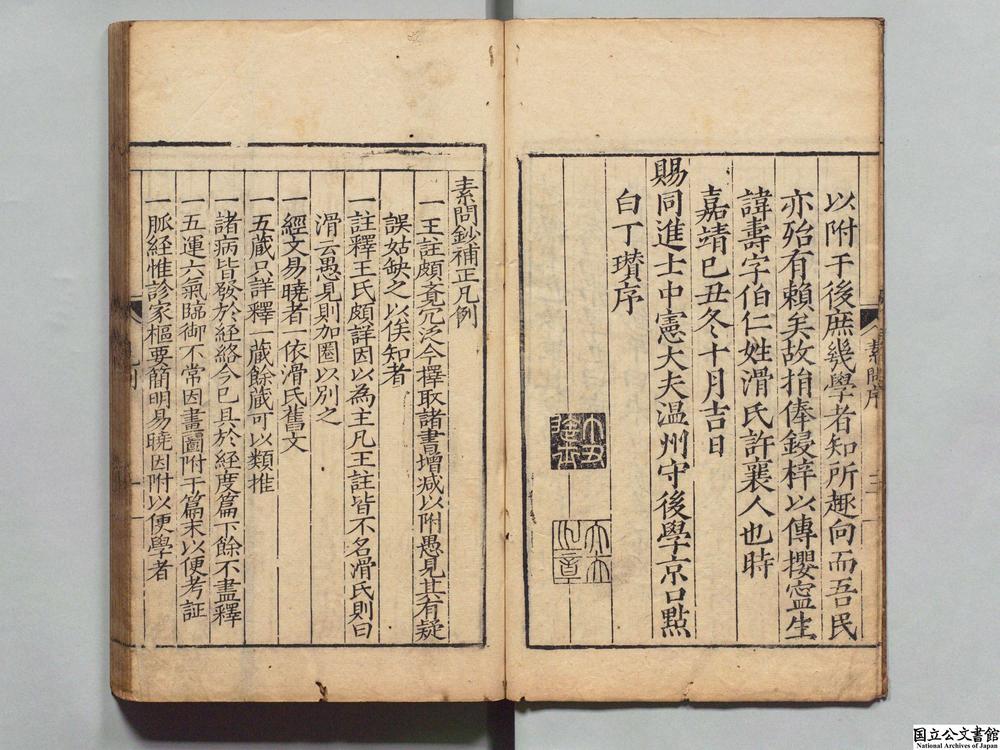 以附于後庶幾學者知所趣向而吾民
亦殆有賴矣故捐俸鋟梓以傳攖寧生
諱壽字伯仁姓滑氏許襄人也時
嘉靖己丑冬十月吉日
賜同進士中憲大夫温州守後學京口點
白丁瓚序
素問序
三
素問鈔補正凡例
一王註頗覺冗泛今擇取諸書增減以附愚見其有疑
誤姑缺之以俟知者
一註釋王氏頗詳因以為主凡王註皆不名滑氏則曰
滑云愚見則加圈以別之
一經文易曉者一依滑氏舊文
一五蔵只詳釋一蔵餘蔵可以類推
一諸病皆發於経絡今已具於経度篇下餘不盡釋
一五運六氣臨御不常因畫圖附于篇末以便考証
一脈経惟診家樞要簡明易曉因附以便學者
凡例
一
国立公文書館
National Archives of Japan